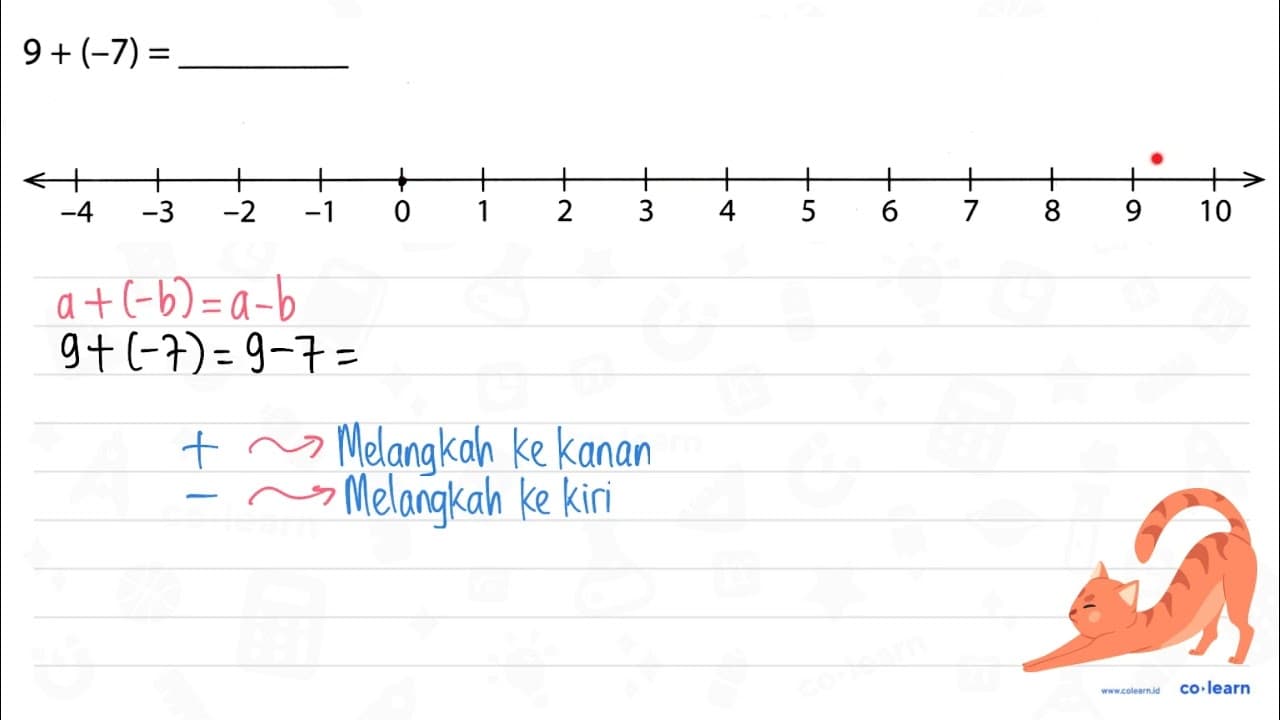 9 + (–7) = __________
–4 –3 –2 –1 0 1 2 3 4 5 6 7 8 9 10
a + (-b) = a - b
9 + (-7) = 9 - 7 =
+ Melangkah ke kanan
- Melangkah ke kiri
www.colearn.id co·learn